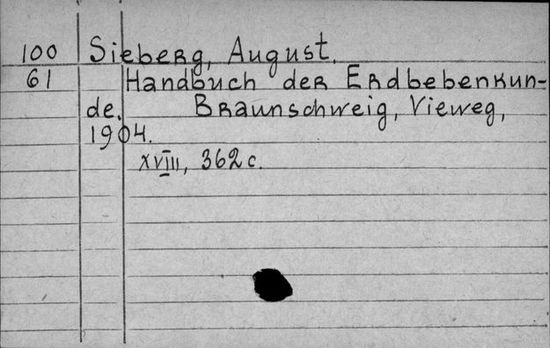 100 Sieberg, August.
61 Handbuch der Erdbebenkun-
de. Braunschweig, Vieweg,
1904.
XVIII, 362 c.